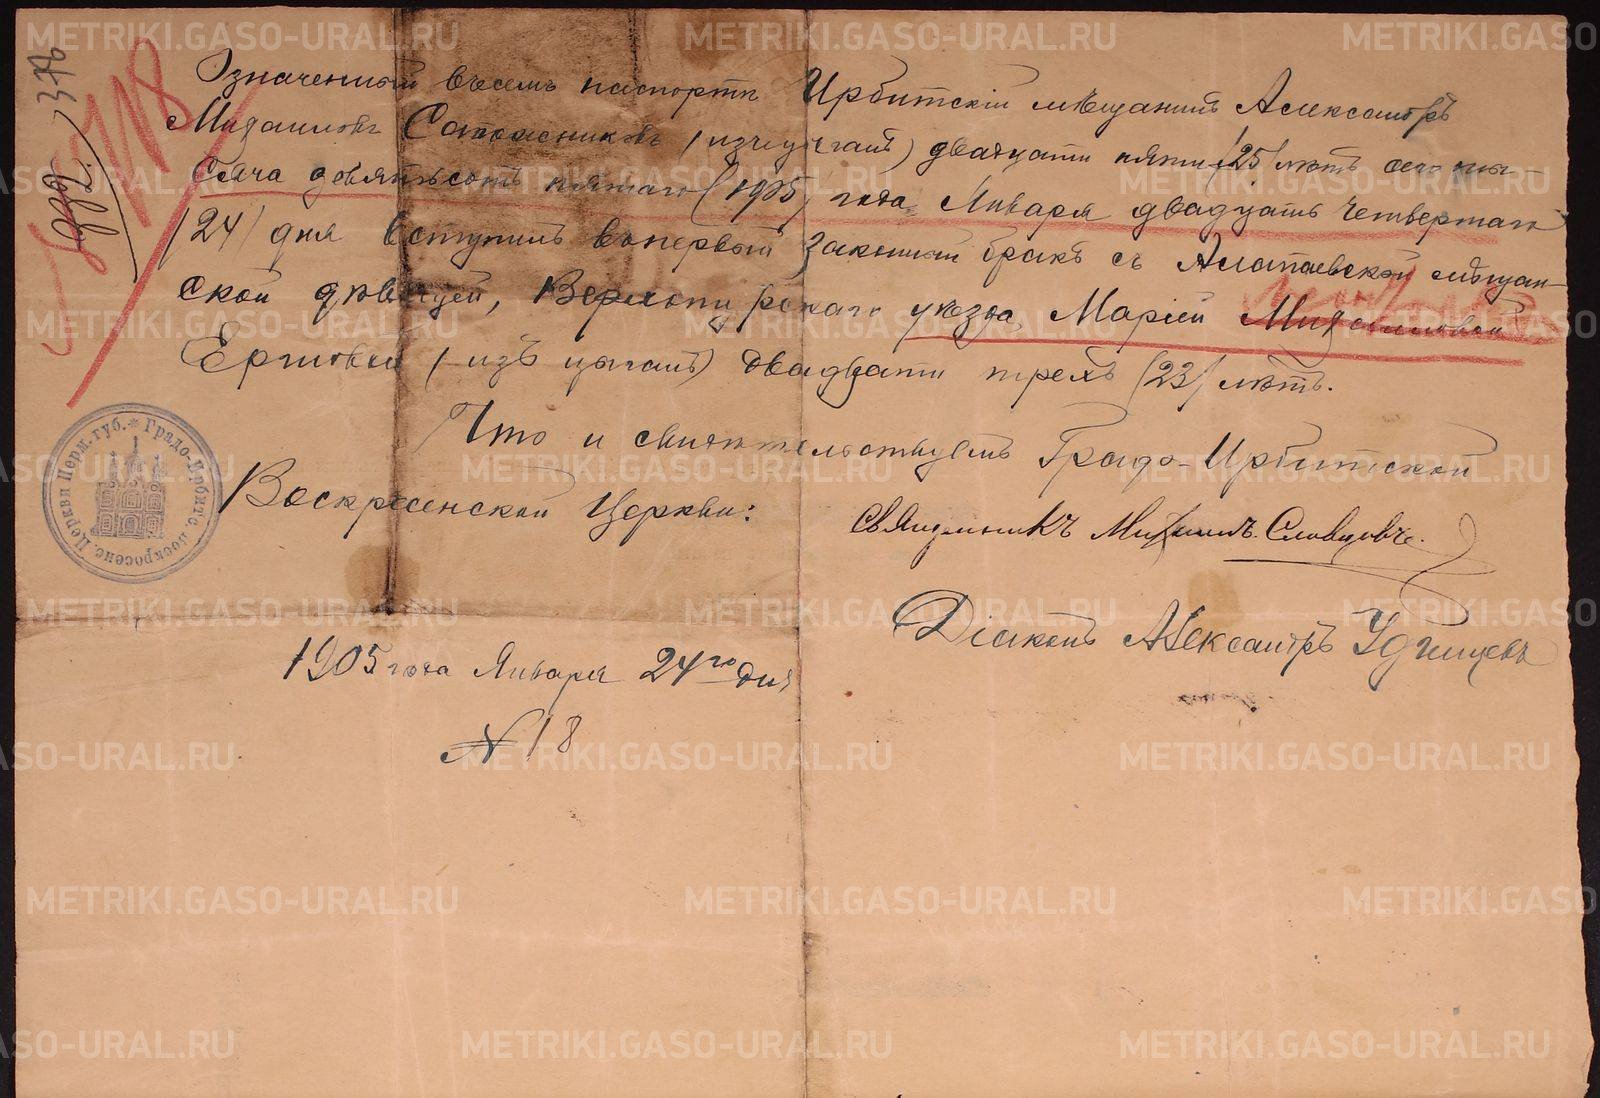 Означенный въ семъ паспортѣ Ирбитскій мѣщанинъ Александръ
Михаиловъ Сапожниковъ (изъ цыганъ) двадцати пяти (25) лѣтъ сего ты-
сяча девятьсотъ пятаго (1905) года Января двадцать четвертаго
(24) дня вступилъ въ первый законный бракъ съ Алапаевской мѣщан-
ской дѣвицей, Верхотурскаго уѣзда, Маріей Михаиловой
(изъ цыганъ) двадцати трехъ (23) лѣтъ.
Что и свидѣтельствуемъ Градо-Ирбитской
Воскресенской Церкви:
Священникъ Михаилъ Словцовъ.
Діаконъ Александръ
1905 года Января 24го дня
№ 18
118
Градо-Ирбитс. Воскресенс. Церкви Перм. губ.
METRIKI.GASO-URAL.RU